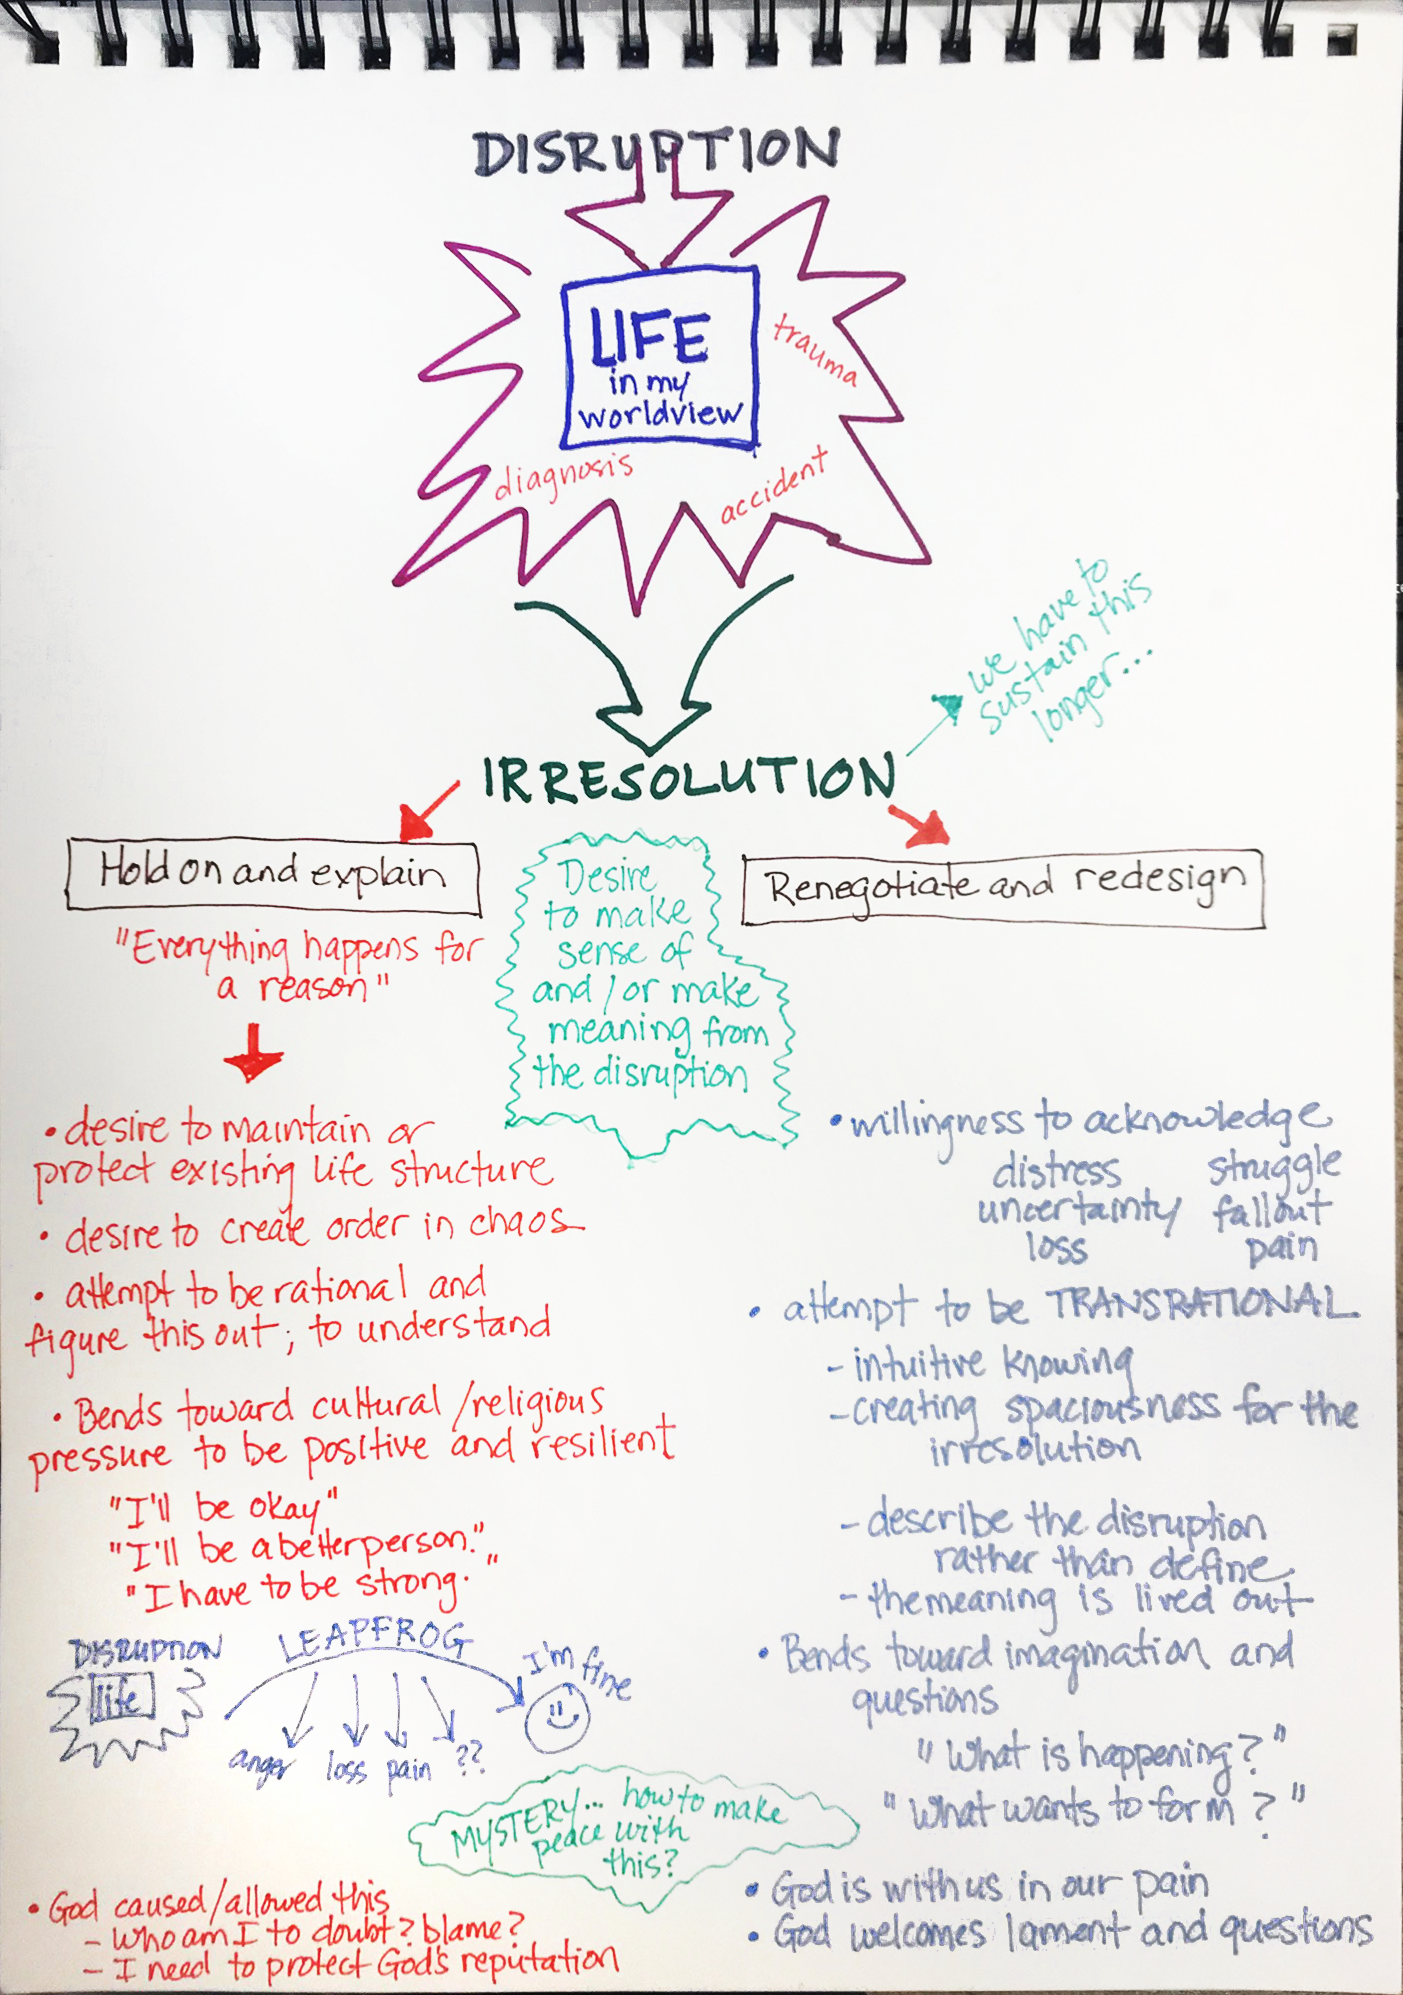 DISRUPTION
LIFE
in my
worldview
trauma
diagnosis
accident
we have to
sustain this
longer...
IRRESOLUTION
Hold on and explain
"Everything happens for
a reason"
• desire to maintain or
protect existing life structure
• desire to create order in chaos
• attempt to be rational and
figure this out; to understand
• Bends toward cultural/religious
pressure to be positive and resilient
"I'll be okay"
"I'll be a better person."
"I have to be strong."
DISRUPTION
life
LEAPFROG
I'm fine
anger
loss
pain
??
• God caused/allowed this
- Who am I to doubt? blame?
- I need to protect God's reputation
Desire
to make
sense of
and/or make
meaning from
the disruption
MYSTERY... how to make
peace with
this?
Renegotiate and redesign
• willingness to acknowledge
distress struggle
uncertainty fallout
loss pain
• attempt to be TRANSRATIONAL
- intuitive knowing
- creating spaciousness for the
irresolution
- describe the disruption
rather than define
- the meaning is lived out
• Bends toward imagination and
questions
"What is happening?"
"What wants to form?"
• God is with us in our pain
• God welcomes lament and questions